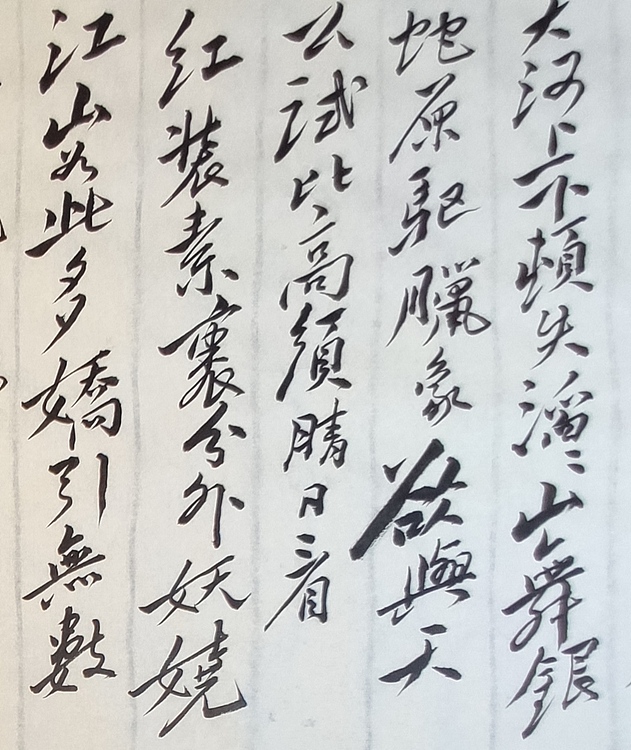 大河上下頓失滔〻山舞銀
蛇原駆臘象欲與天
公試比高須晴日看
紅裝素裹分外妖嬈
江山如此多嬌引無數